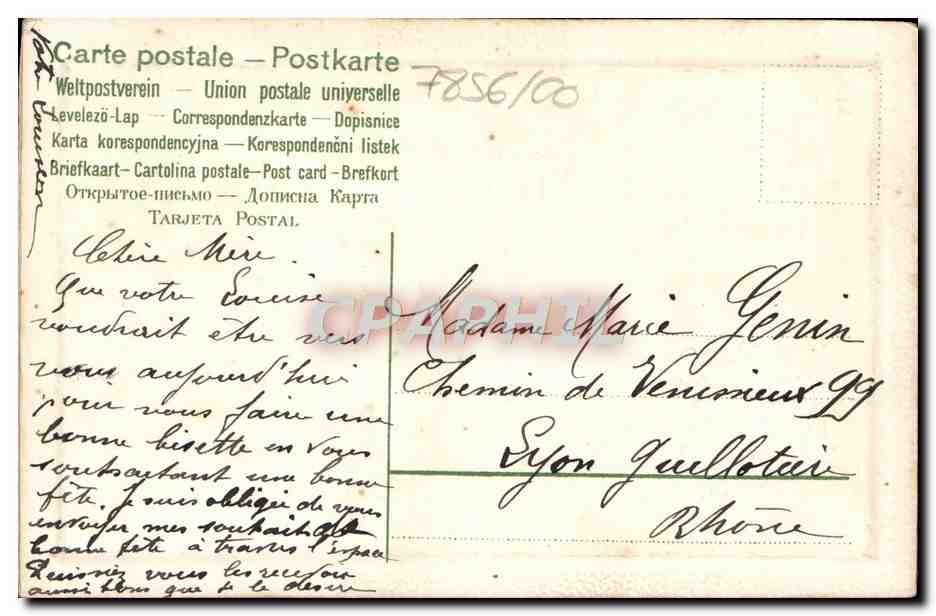 Carte postale — Postkarte
Weltpostverein — Union postale universelle
Levelező-Lap — Correspondenzkarte — Dopisnice
Karta korespondencyjna — Korespondenční listek
Briefkaart — Cartolina postale — Post card — Brefkort
Открытое-письмо — Дописна Карта
TARJETA POSTAL
7856/00
Chère Mère.
Que votre Louise
voudrait être vers
vous aujourd'hui
pour vous faire une
bonne bisette en vous
souhaitant une bonne
fête. Je suis obligée de vous
envoyer mes souhaits de
bonne fête à travers l'espace
Puissiez vous les recevoir
aussi bons que je le désire
Votre
CPAPHIL
Madame Marie Genin
Chemin de Venissieux 99
Lyon Guillotière
Rhône